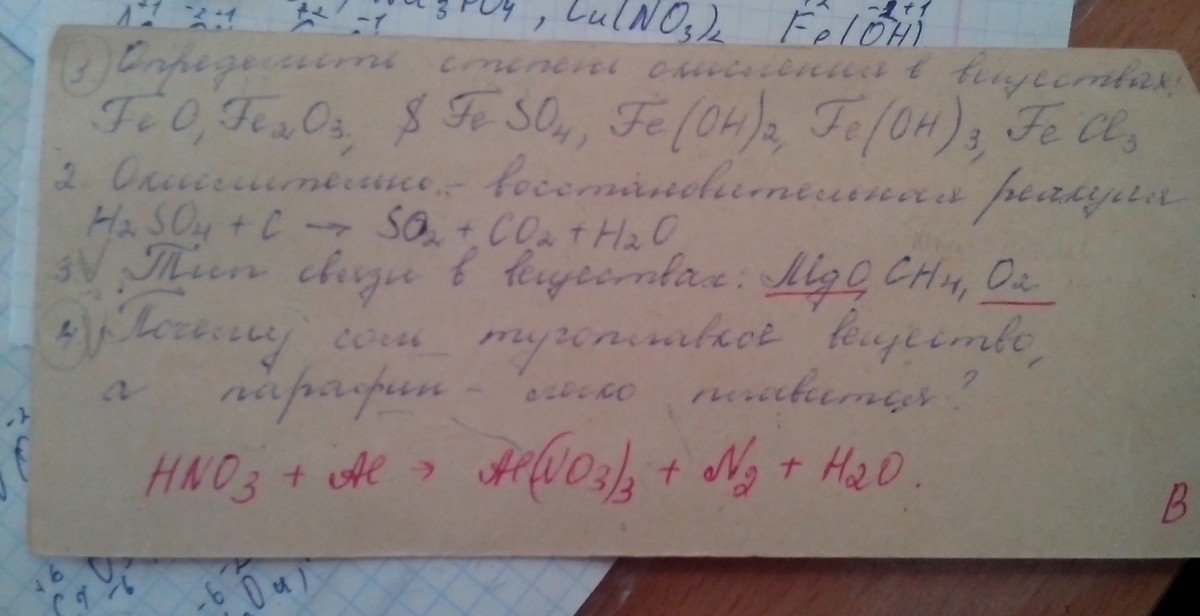 PO4, Cu(NO3)2 Fe(OH)
1 Определить степень окисления в веществах:
FeO, Fe2O3, FeSO4, Fe(OH)2, Fe(OH)3, FeCl3
2. Окислительно-восстановительная реакция
H2SO4 + C → SO2 + CO2 + H2O
3 Тип связи в веществах: MgO CH4, O2
4 Почему соль тугоплавкое вещество,
а парафин - легко плавится?
HNO3 + Al → Al(NO3)3 + N2 + H2O.
В